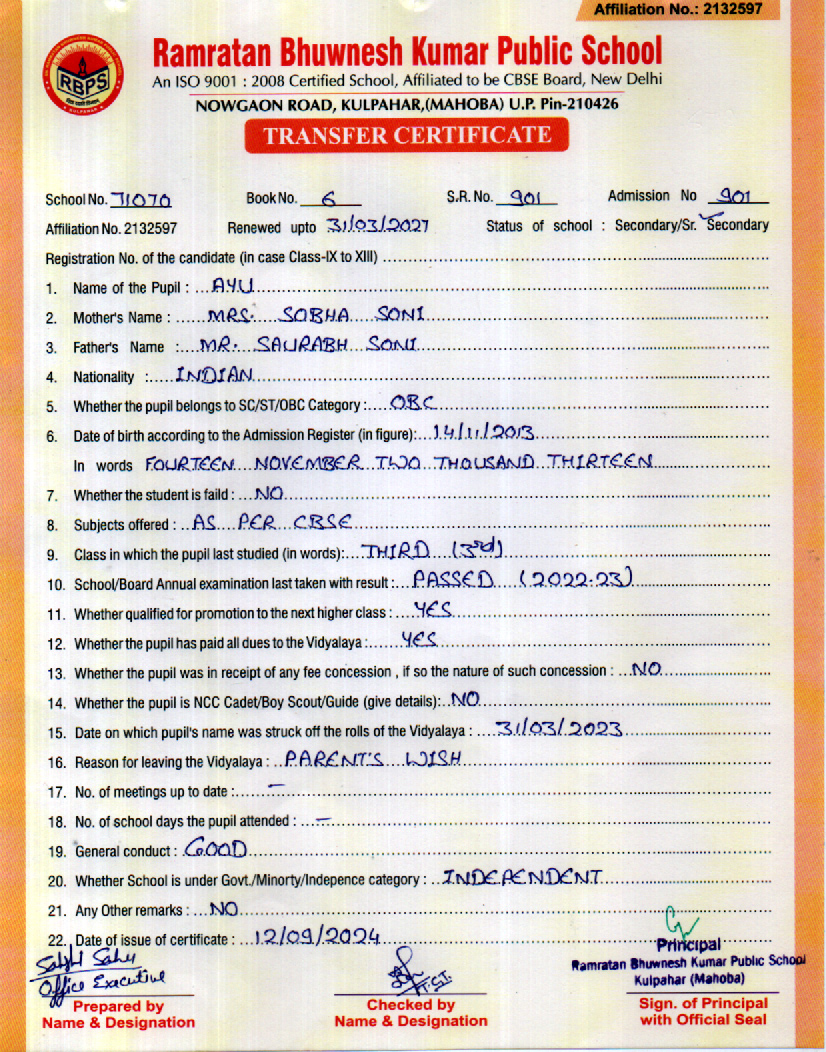 Affiliation No.: 2132597
RBPS
KULPAHAR
Ramratan Bhuwnesh Kumar Public School
An ISO 9001 : 2008 Certified School, Affiliated to be CBSE Board, New Delhi
NOWGAON ROAD, KULPAHAR,(MAHOBA) U.P. Pin-210426
TRANSFER CERTIFICATE
School No. 71070 Book No. 6 S.R. No. 901 Admission No 901
Affiliation No. 2132597 Renewed upto 31/03/2027 Status of school : Secondary/Sr. Secondary
Registration No. of the candidate (in case Class-IX to XIII)
1. Name of the Pupil : AYU
2. Mother's Name : MRS. SOBHA SONI
3. Father's Name : MR. SAURABH SONI
4. Nationality : INDIAN
5. Whether the pupil belongs to SC/ST/OBC Category : OBC
6. Date of birth according to the Admission Register (in figure): 14/11/2013
In words FOURTEEN NOVEMBER TWO THOUSAND THIRTEEN
7. Whether the student is faild : NO
8. Subjects offered : AS PER CBSE
9. Class in which the pupil last studied (in words): THIRD (3rd)
10. School/Board Annual examination last taken with result : PASSED (2022-23)
11. Whether qualified for promotion to the next higher class : YES
12. Whether the pupil has paid all dues to the Vidyalaya : YES
13. Whether the pupil was in receipt of any fee concession , if so the nature of such concession : NO
14. Whether the pupil is NCC Cadet/Boy Scout/Guide (give details): NO
15. Date on which pupil's name was struck off the rolls of the Vidyalaya : 31/03/2023
16. Reason for leaving the Vidyalaya : PARENT'S WISH
17. No. of meetings up to date : —
18. No. of school days the pupil attended : —
19. General conduct : GOOD
20. Whether School is under Govt./Minorty/Indepence category : INDEPENDENT
21. Any Other remarks : NO
22. Date of issue of certificate : 12/09/2024
Principal
Ramratan Bhuwnesh Kumar Public School
Kulpahar (Mahoba)
Sahu
Office Executive
Prepared by
Name & Designation
Checked by
Name & Designation
Sign. of Principal
with Official Seal